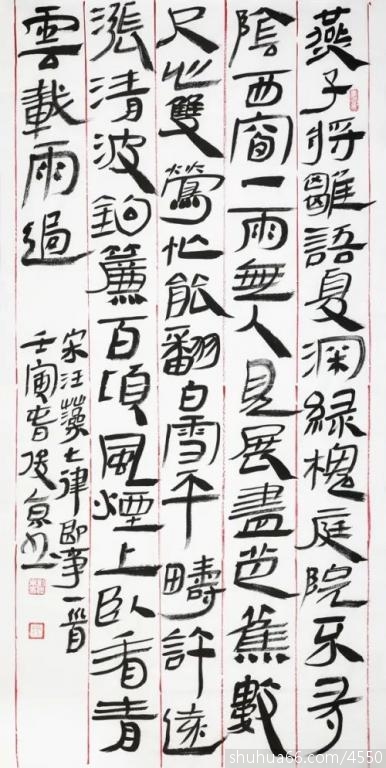 燕子將雛語夏深綠槐庭院不多
陰西窗一雨無人見展盡芭蕉數
尺心雙鶯忙能翻白雪平疇許遠
漲清波鈎簾百頃風煙上臥看青
雲載雨過
宋汪藻七律即事一首
壬寅春
shuhua66.com/4550